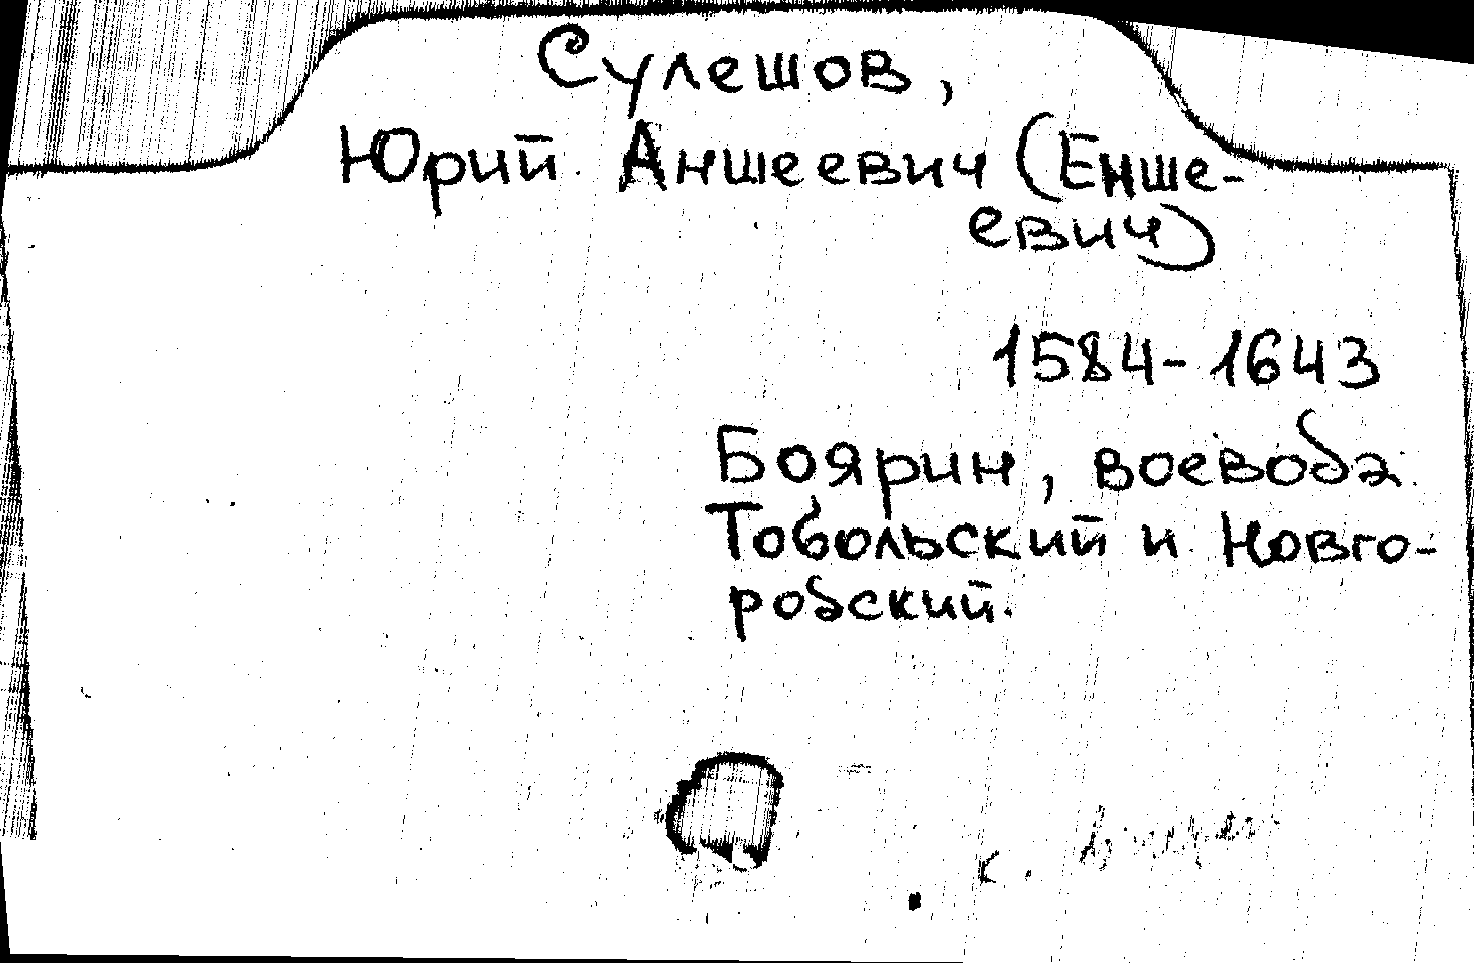 Сулешов,
Юрий Аншеевич (Енше-
евич)
1584-1643
Боярин, воевода
Тобольский и Новго-
родский.
к.